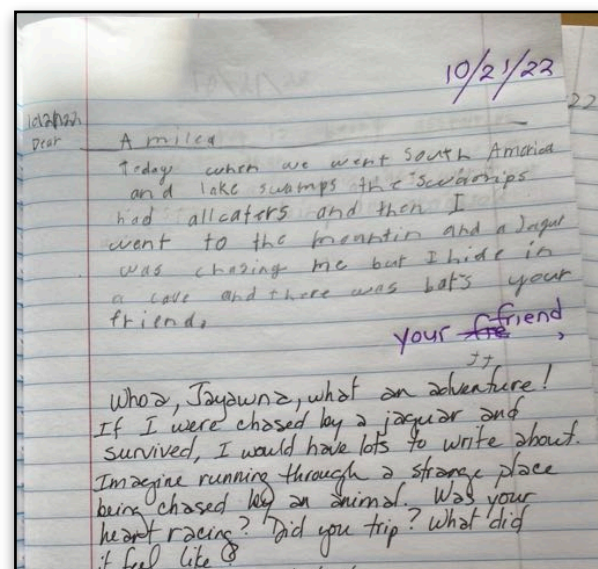 10/21/22
22
10/21/22
Dear Amilea
Today when we went South America
and lake swamps the swamps
had allcaters and then I
went to the meantin and a Jagur
was chasing me but I hide in
a cave and there was bat's your
friend,
your fre friend,
JJ
Whoa, Jayawna, what an adventure!
If I were chased by a jaguar and
survived, I would have lots to write about.
Imagine running through a strange place
being chased by an animal. Was your
heart racing? Did you trip? What did
it feel like?